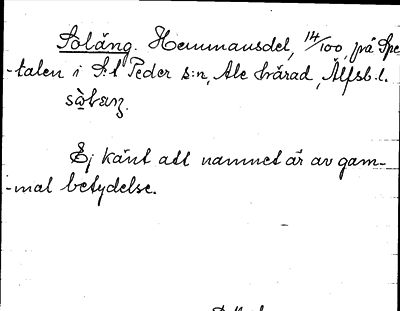 Soläng. Hemmansdel, 14/100, på Spe-
-talen i S:t Peder s:n, Ale härad, Älfsb. l.
Ej känt att namnet är av gam-
-mal betydelse.